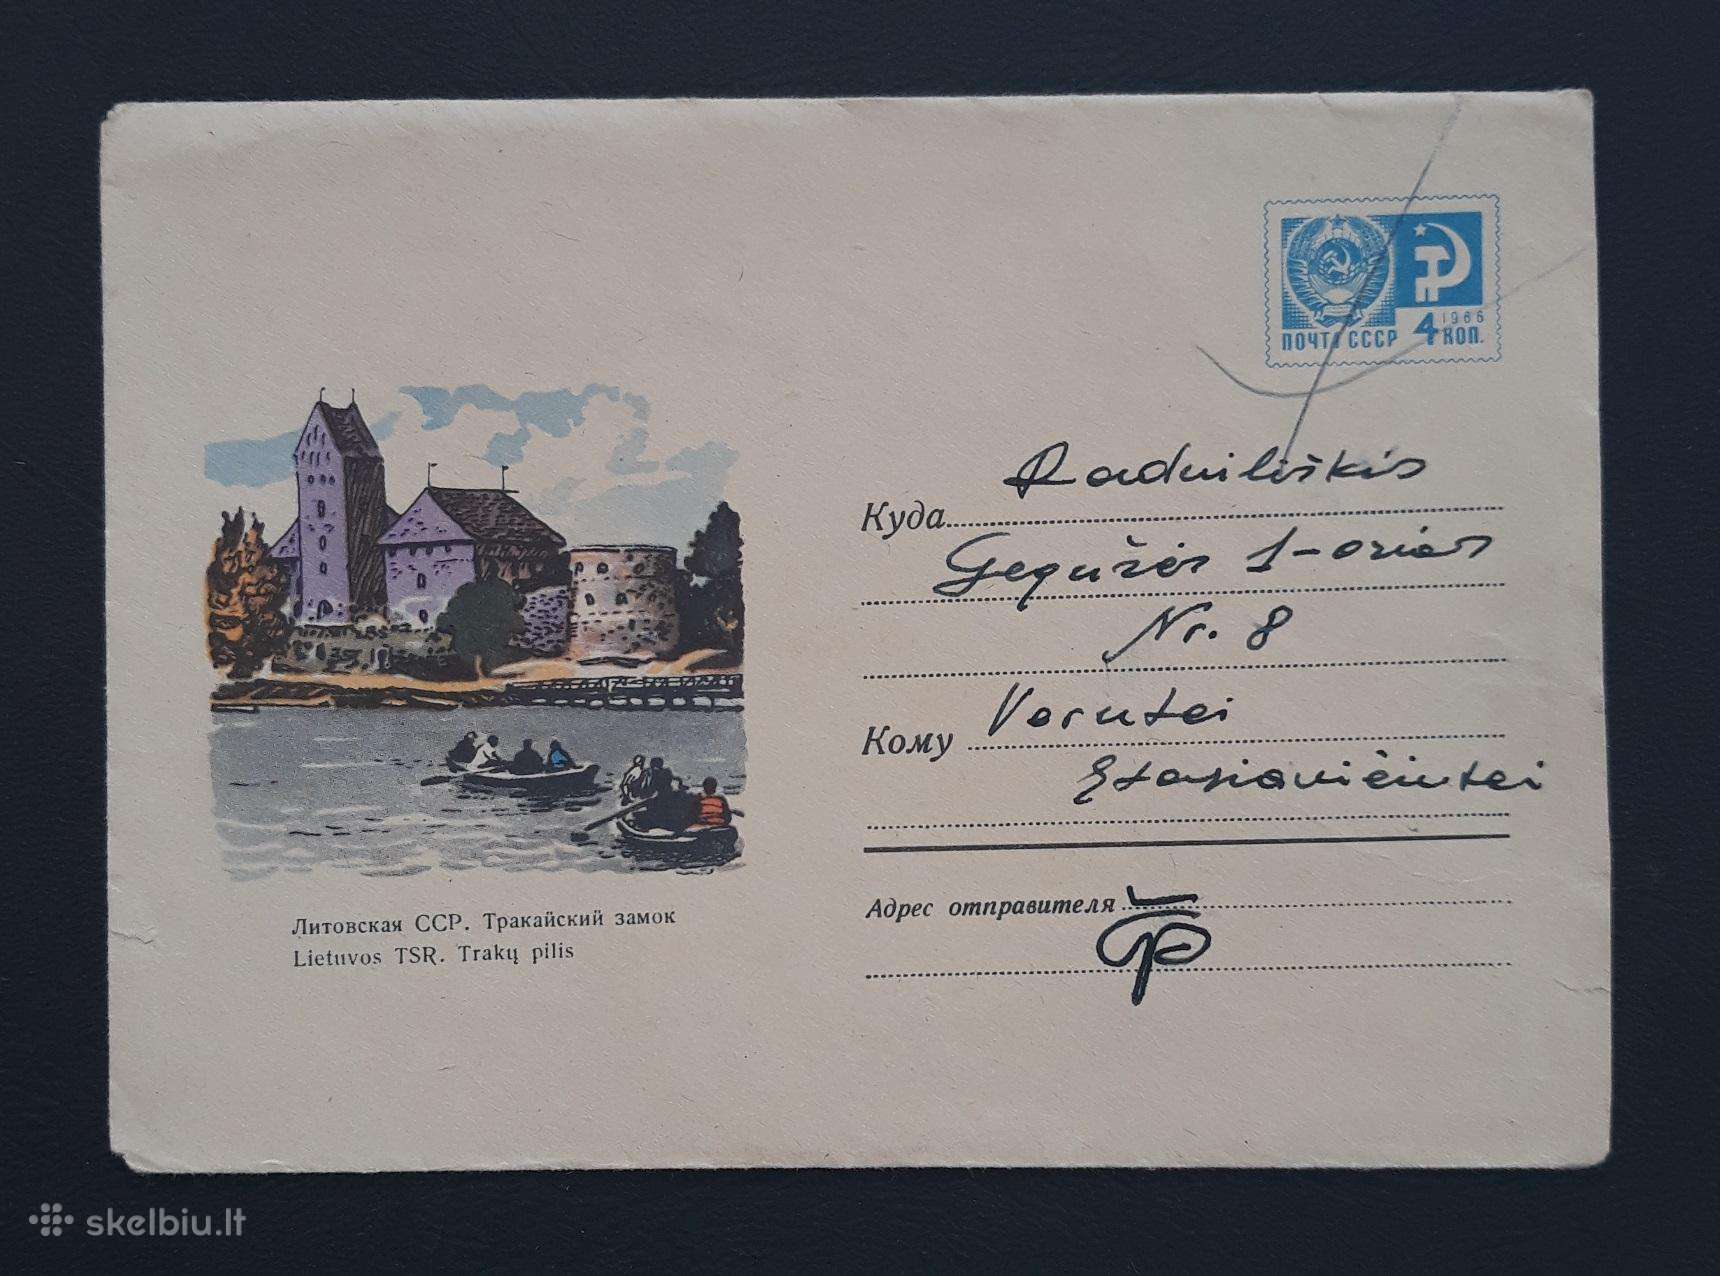 1966
ПОЧТА СССР 4 КОП.
Radviliškis
Куда
Gegužės 1-osios
Nr. 8
Кому Verutei
Адрес отправителя
Литовская ССР. Тракайский замок
Lietuvos TSR. Trakų pilis
skelbiu.lt